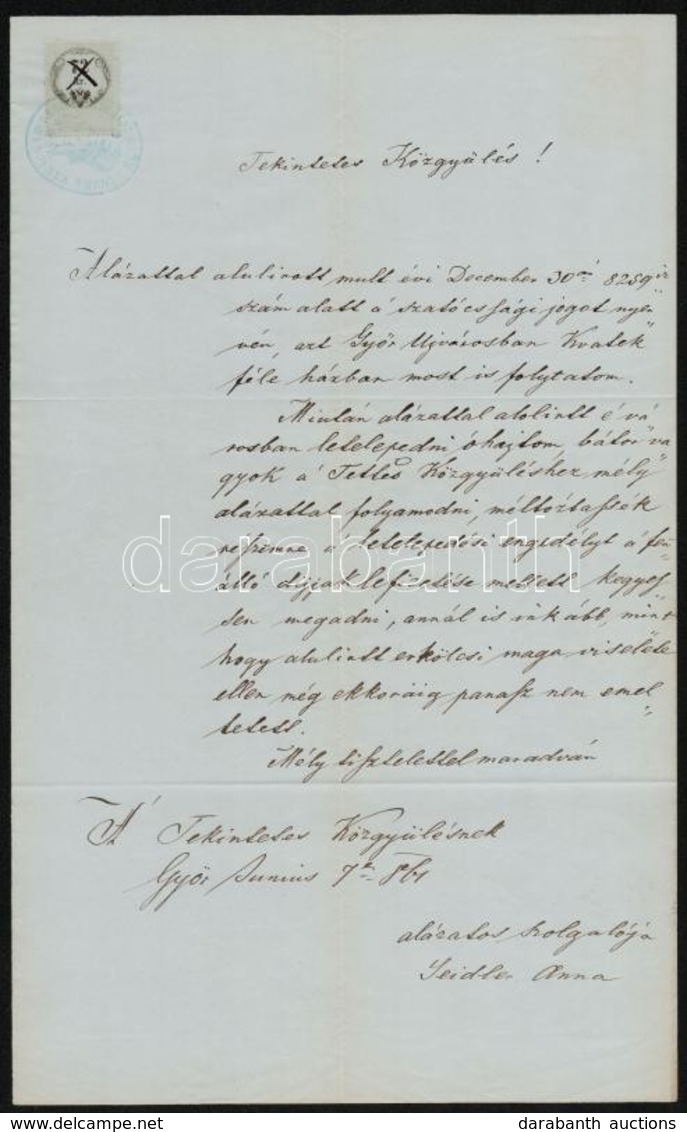 Tekintetes Közgyülés!
Alázattal alulirott mult évi December 30án 8259
szám alatt á szatócssági jogot nyer
vén, azt Győr Ujvárosban Kvatek
féle házban most is folytatom.
Miután alázattal alolirtt é vá
rosban letelepedni óhajtom, bátor va
gyok á Tettes Közgyüléshez mély
alázattal folyamodni, méltóztassék
részemre á letelepedési engedélyt á fen
álló díjjak lefizetése mellett kegyes
sen megadni, annál is inkább, mint
hogy alulirtt erkölcsi maga viselete
ellen még ekkoráig panasz nem emel
tetett.
Mély tisztelettel maradván
Á Tekintetes Közgyülésnek
Győr Junius 7én
alázatos szolgalója
Seidler Anna
darabanth
darabanth auctions